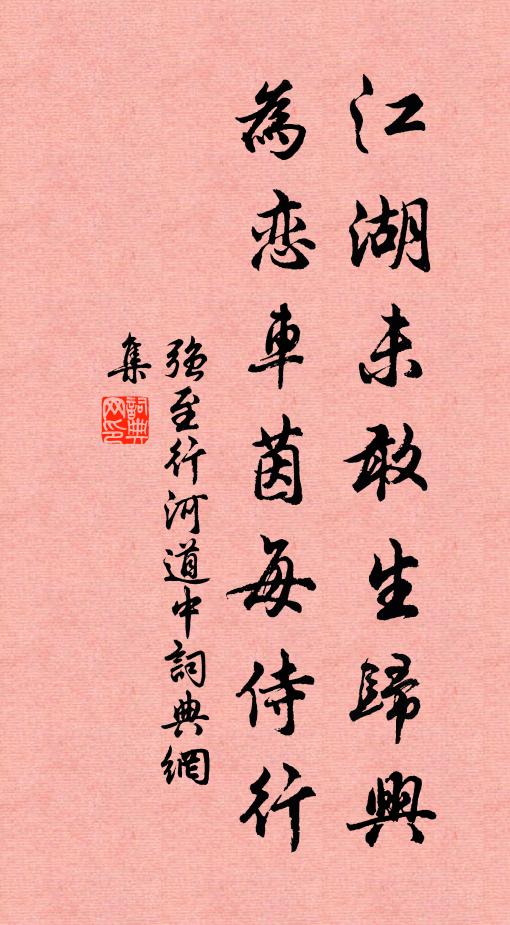 江湖未敢生歸興
為恋車茵每侍行
強至行河道中詞典網
集
詞典網印